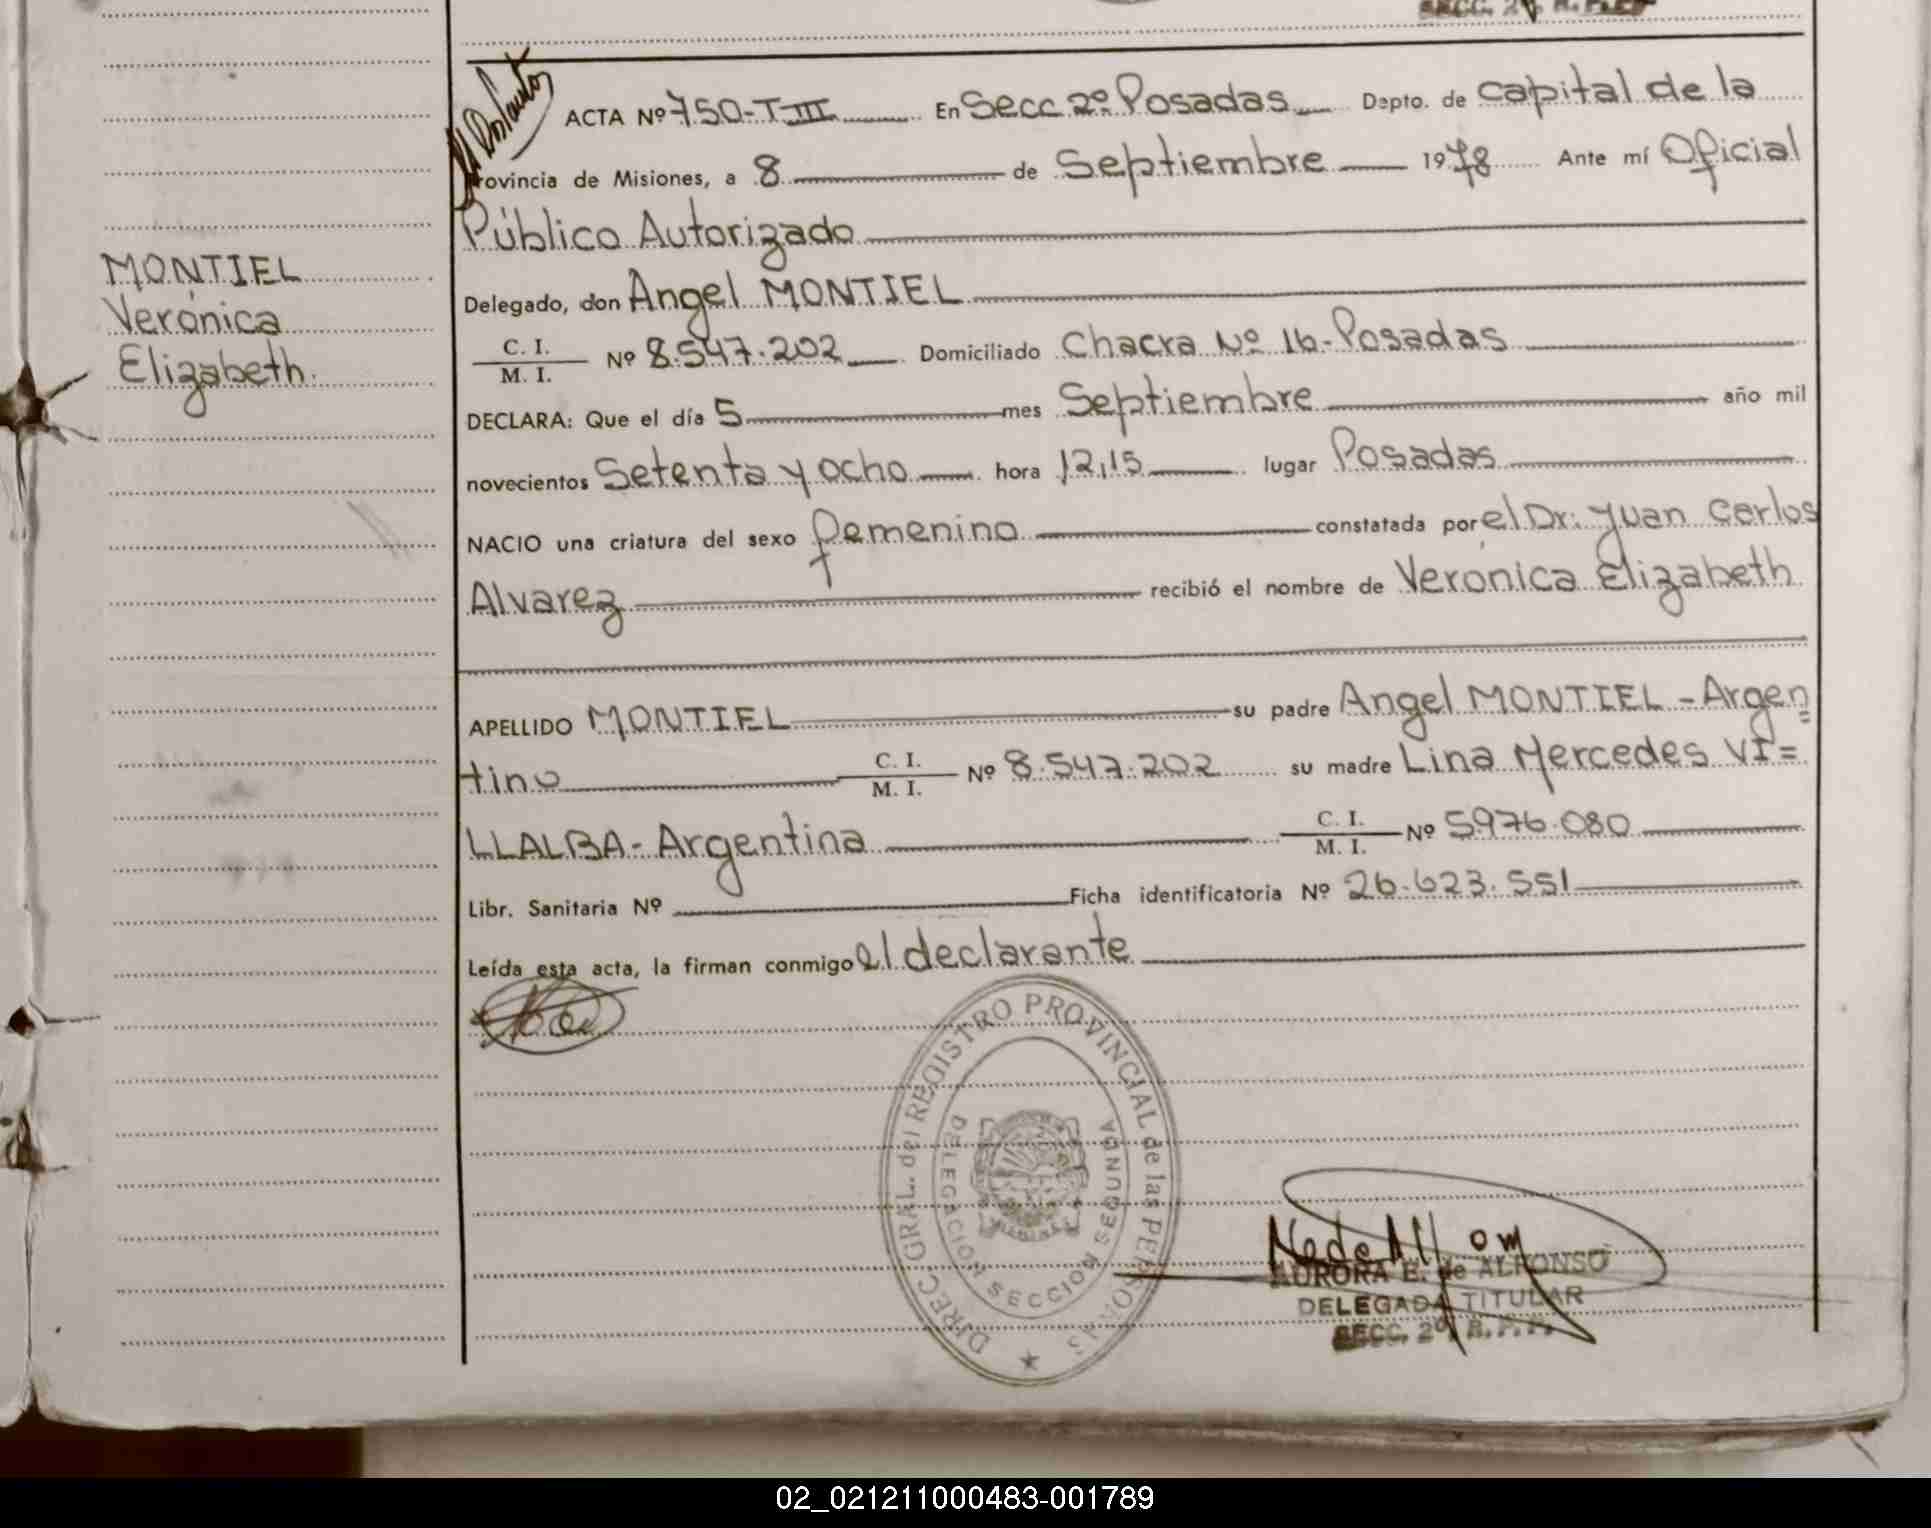 SECC. 2ª R.P.P.
ACTA Nº 750-T III En Secc 2º Posadas Depto. de capital de la
Provincia de Misiones, a 8 de Septiembre 1978 Ante mí Oficial
Público Autorizado
MONTIEL
Verónica
Elizabeth.
Delegado, don Angel MONTIEL
C. I.
M. I. Nº 8.547.202 Domiciliado Chacra Nº 16-Posadas
DECLARA: Que el día 5 mes Septiembre año mil
novecientos Setenta y ocho hora 12,15 lugar Posadas
NACIO una criatura del sexo femenino constatada por el Dr: Juan Carlos
Alvarez recibió el nombre de Verónica Elizabeth
APELLIDO MONTIEL su padre Angel MONTIEL - Argen=
tino C. I.
M. I. Nº 8.547.202 su madre Lina Mercedes VI=
LLALBA- Argentina C. I.
M. I. Nº 5.976.080
Libr. Sanitaria Nº Ficha identificatoria Nº 26.623.551
Leída esta acta, la firman conmigo el declarante
DIREC. GRAL. del REGISTRO PROVINCIAL de las PERSONAS
DELEGACION SECCION SEGUNDA
AURORA E. de ALFONSO
DELEGADA TITULAR
SECC. 2ª R.P.P.
02_021211000483-001789